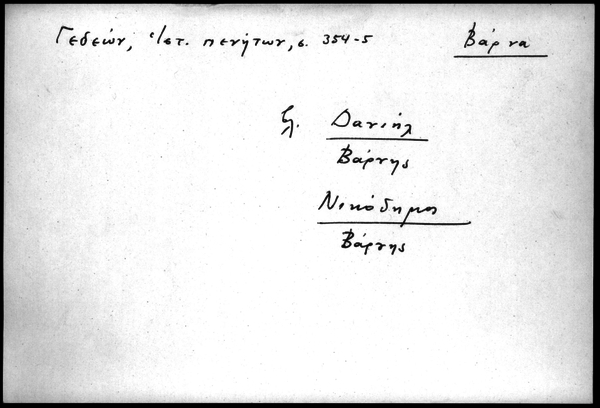 Γεδεών, Ἱστ. πενήτων, σ. 354-5 Βάρνα
βλ. Δανιήλ
Βάρνης
Νικόδημος
Βάρνης